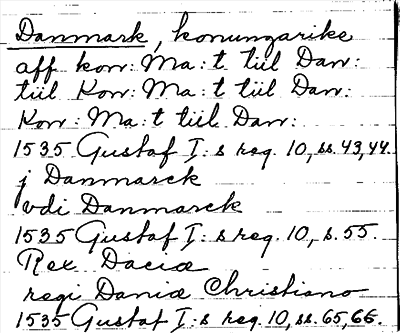 Danmark, konungarike
aff kon: Ma:t tiil Dan:
tiil Kon: Ma:t tiil Dan:
Kon: Ma:t tiil Dan:
1535 Gustaf I:s reg. 10, ss. 43,44.
j Danmarck
vdi Danmarck
1535 Gustaf I:s reg. 10, s. 55.
Rex Daciæ
regi Daniæ Christiano
1535 Gustaf I:s reg. 10, ss. 65,66.